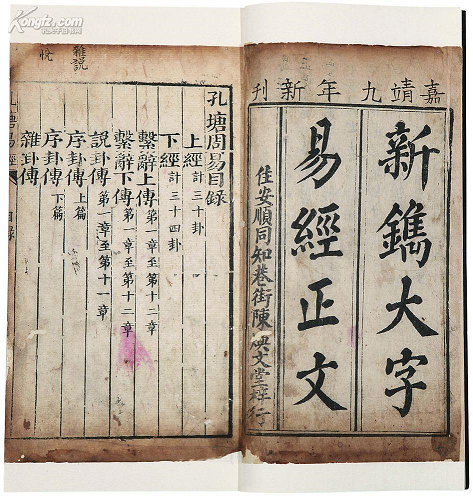 Kongfz.com
嘉靖九年新刊
新鐫大字
易經正文
住安順同知巷街陳 文堂梓行
孔塘周易目錄
上經 計三十卦
下經 計三十四卦
繫辭上傳 第一章至第十二章
繫辭下傳 第一章至第十二章
說卦傳 第一章至第十一章
序卦傳 上篇
序卦傳 下篇
雜卦傳
目錄
雜說